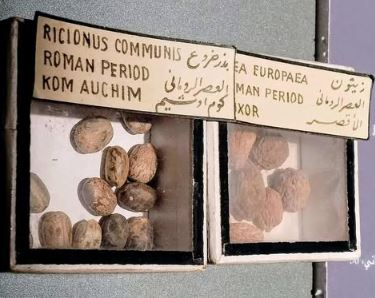 RICIONUS COMMUNIS بذر خروع
ROMAN PERIOD العصر الرومانى
KOM AUCHIM كوم اوشيم
EA EUROPAEA زيتون
MAN PERIOD العصر الرومانى
XOR الأقصر